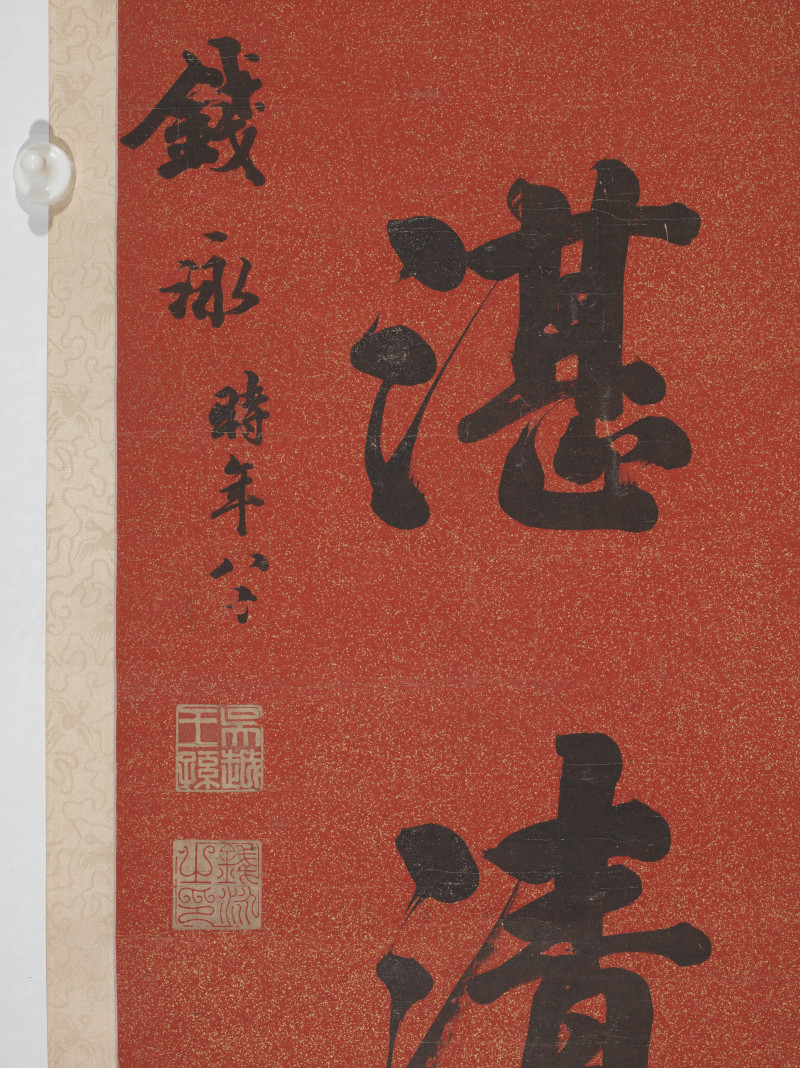 湛清
錢泳時年八
吳越
王孫
錢泳
之印